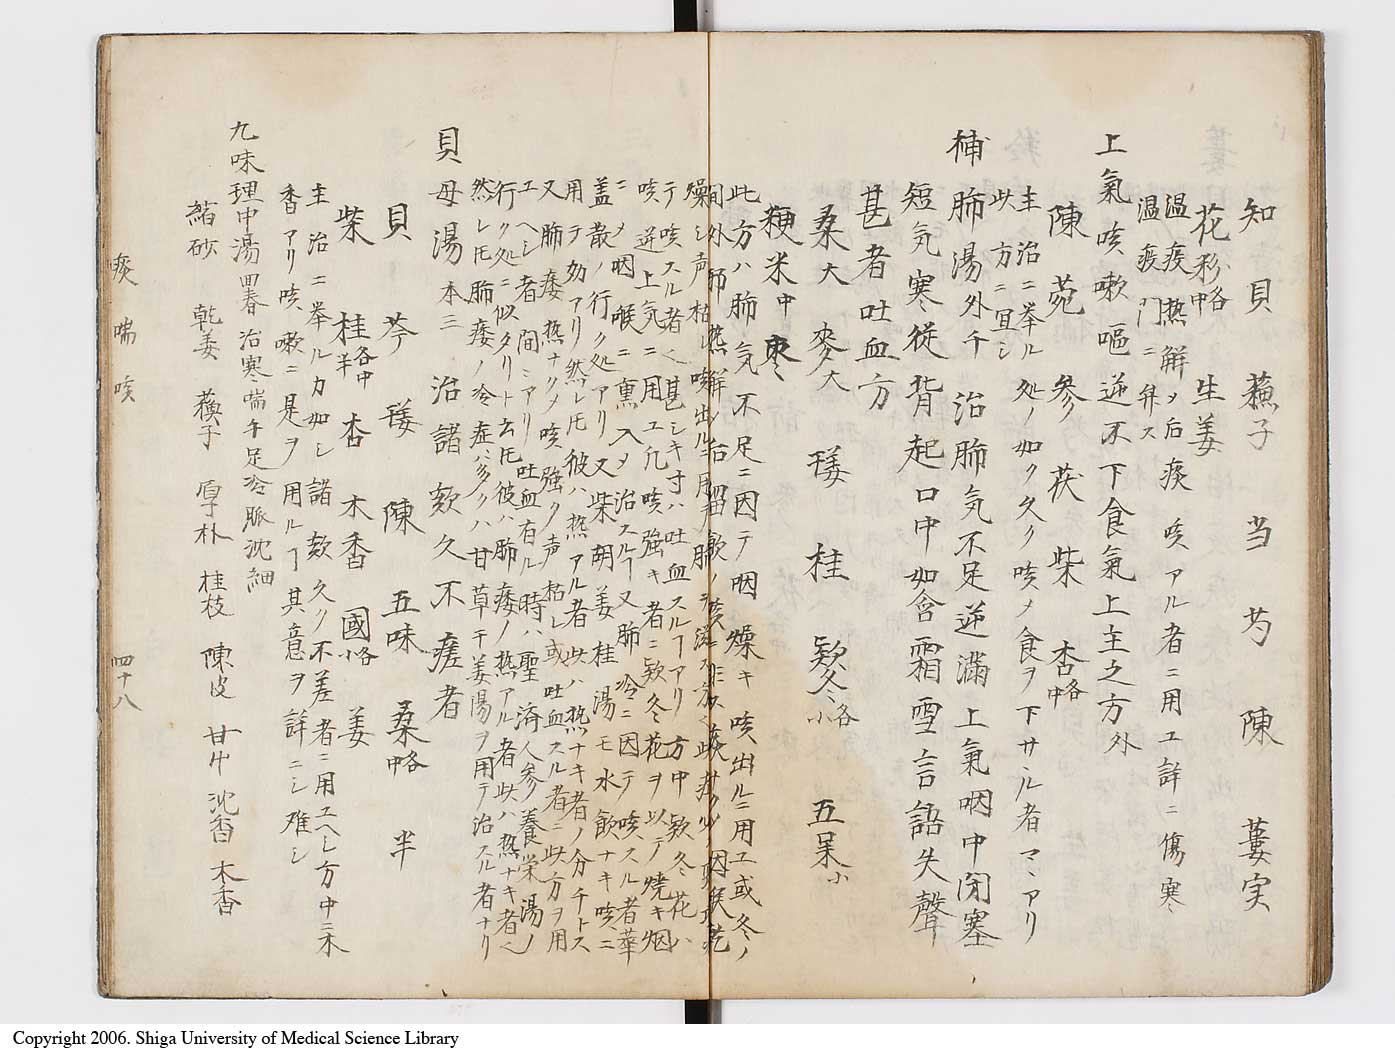 知 貝 蘓子 当 芍 陳 蔞実
花粉 各中 生姜
温疫熱解メ后痰咳アル者ニ用ユ詳ニ傷寒
温疫門ニ弁ス
上氣咳嗽嘔逆不下食氣上主之方 外
陳 菀 參 茯 柴 杏 各中
主治ニ挙ル処ノ如ク久ク咳メ食ヲ下サヽル者マヽアリ
此方ニ宜シ
補肺湯 外千 治肺気不足逆満上氣咽中閉塞
短気寒従背起口中如含霜雪言語失聲
甚者吐血方
桑大 麥大 桂 欵冬 各小 五 小
粳米中 棗
此方ハ肺気不足ニ因テ咽燥キ咳出ルニ用ユ或冬ノ
間外邪熱解メ后
燥シ声枯レ咳出ルニ用
テ咳スル者也甚シキ寸ハ吐血スルヿアリ方中欵冬花ハ
咳逆上気ニ用ユ凡咳強キ者ニ欵冬花ヲ以テ焼キ烟
ニメ咽喉ニ熏入メ治スルヿ又肺冷ニ因テ咳スル者華
盖散ノ行ク処アリ又柴胡姜桂湯モ水飲ナキ咳ニ
用テ効アリ然レ圧彼ハ熱アル者此ハ熱ナキ者ノ分チトス
又肺痿熱ナクメ咳強ク声枯レ或吐血スル者ニ此方ヲ用
ユヘシ者間ニアリ吐血有ル時ハ聖済人参養栄湯ノ
行ク処ニ似タリト云圧彼ハ肺痿ノ熱アル者此ハ熱ナキ者也
然レ圧肺痿ノ冷症ハ多クハ甘草干姜湯ヲ用テ治スル者ナリ
貝母湯 本三 治諸欬久不瘥者
貝 芩 蔞 陳 五味 桑 各中 半
柴 桂 各中半 杏 木香 國 各小 姜
主治ニ挙ルカ如シ諸欬久ク不差者ニ用ユヘシ方中ニ木
香アリ咳嗽ニ是ヲ用ルヿ其意ヲ詳ニシ難シ
九味理中湯 回春 治寒喘手足冷脈沈細
縮砂 乾姜 蘓子 厚朴 桂枝 陳皮 甘艸 沈香 木香
痰 喘 咳 四十八
Copyright 2006. Shiga University of Medical Science Library